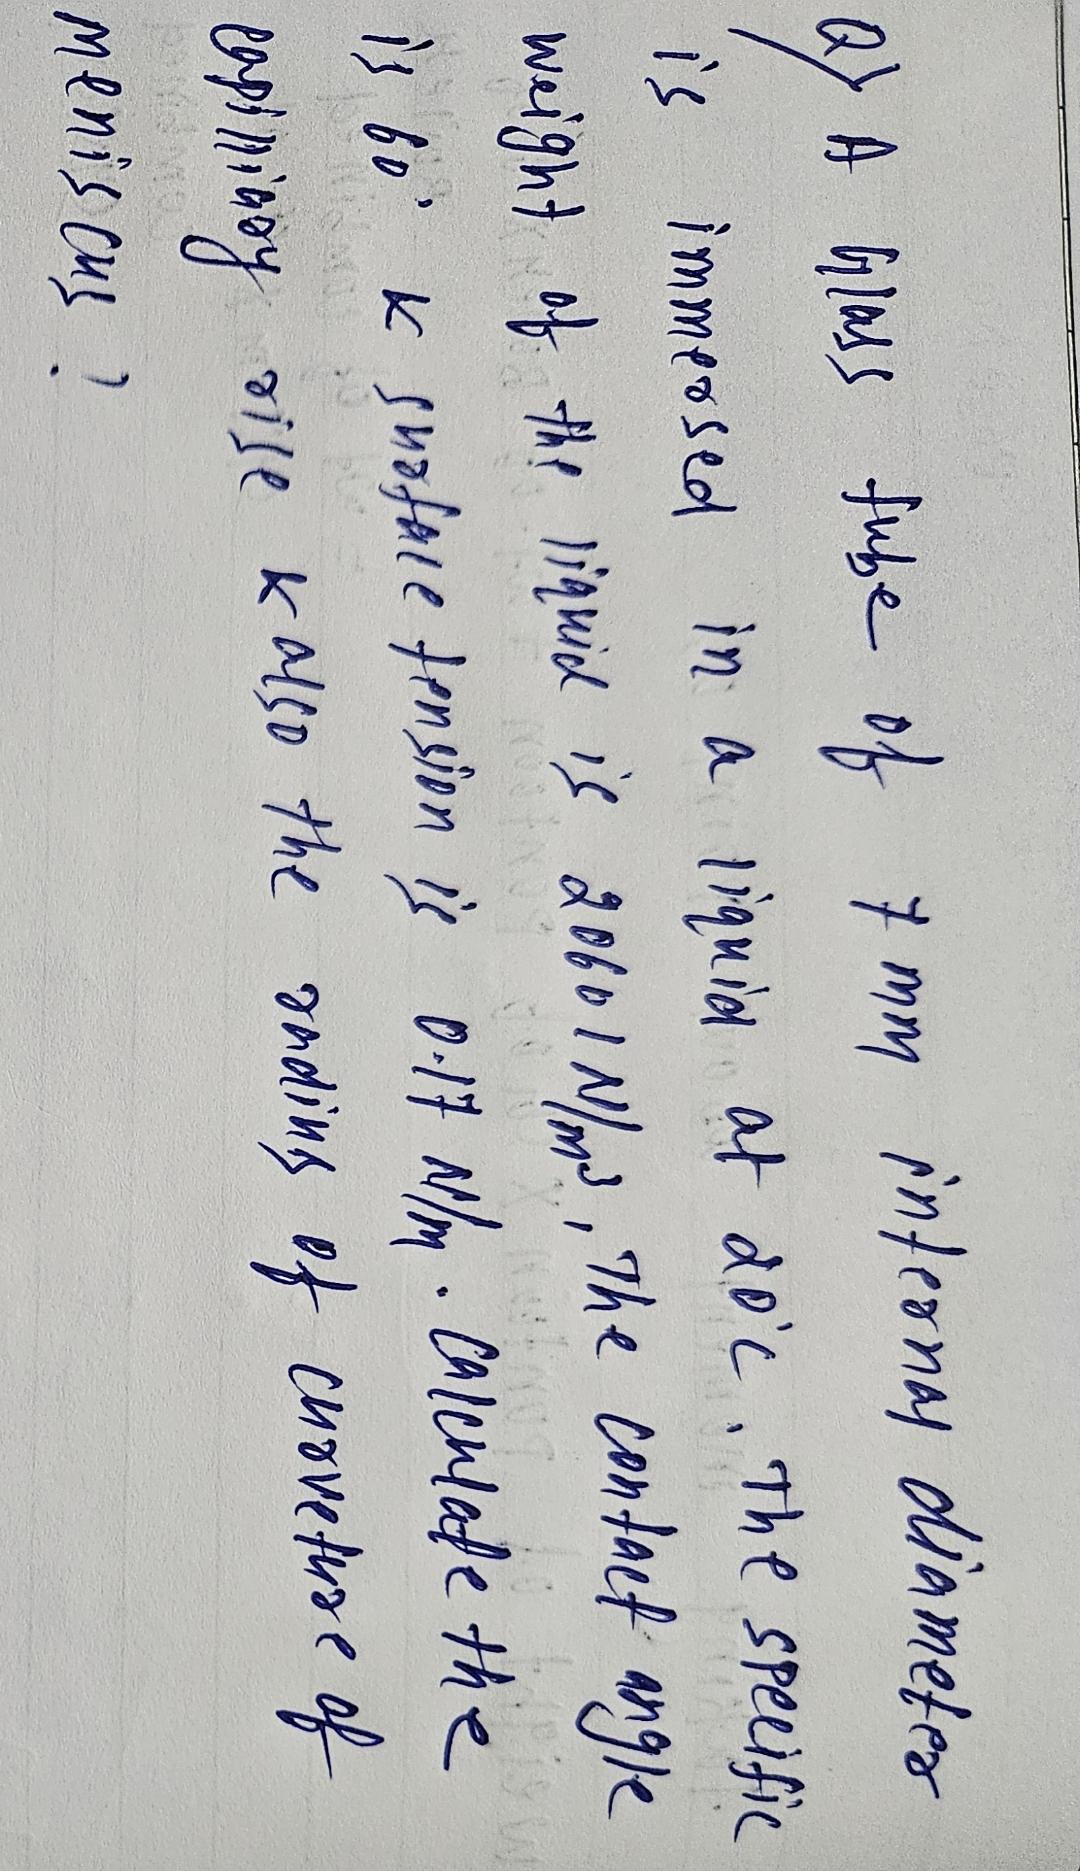 Q) A Glass tube of 7 mm internal diameter
is immersed in a liquid at 20°c. The specific
weight of the liquid is 20601 N/m³, The contact angle
is 60° & surface tension is 0.17 N/m. Calculate the
capilliary rise & also the radius of curveture of
meniscus ;